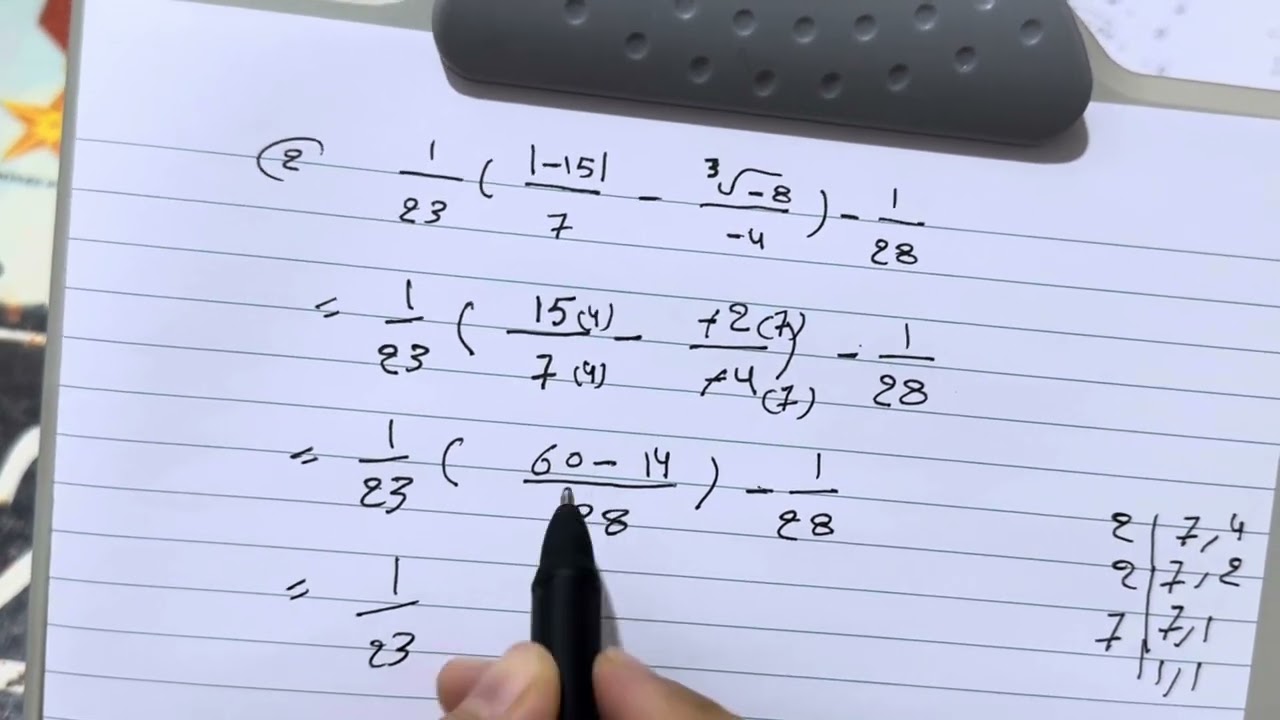 (2 1/23 ( |-15|/7 - ³√-8/-4 ) - 1/28
= 1/23 ( 15(4)/7(4) - -2(7)/-4(7) ) - 1/28
= 1/23 ( 60-14/28 ) - 1/28
= 1/23
2 | 7, 4
2 | 7, 2
7 | 7, 1
| 1, 1